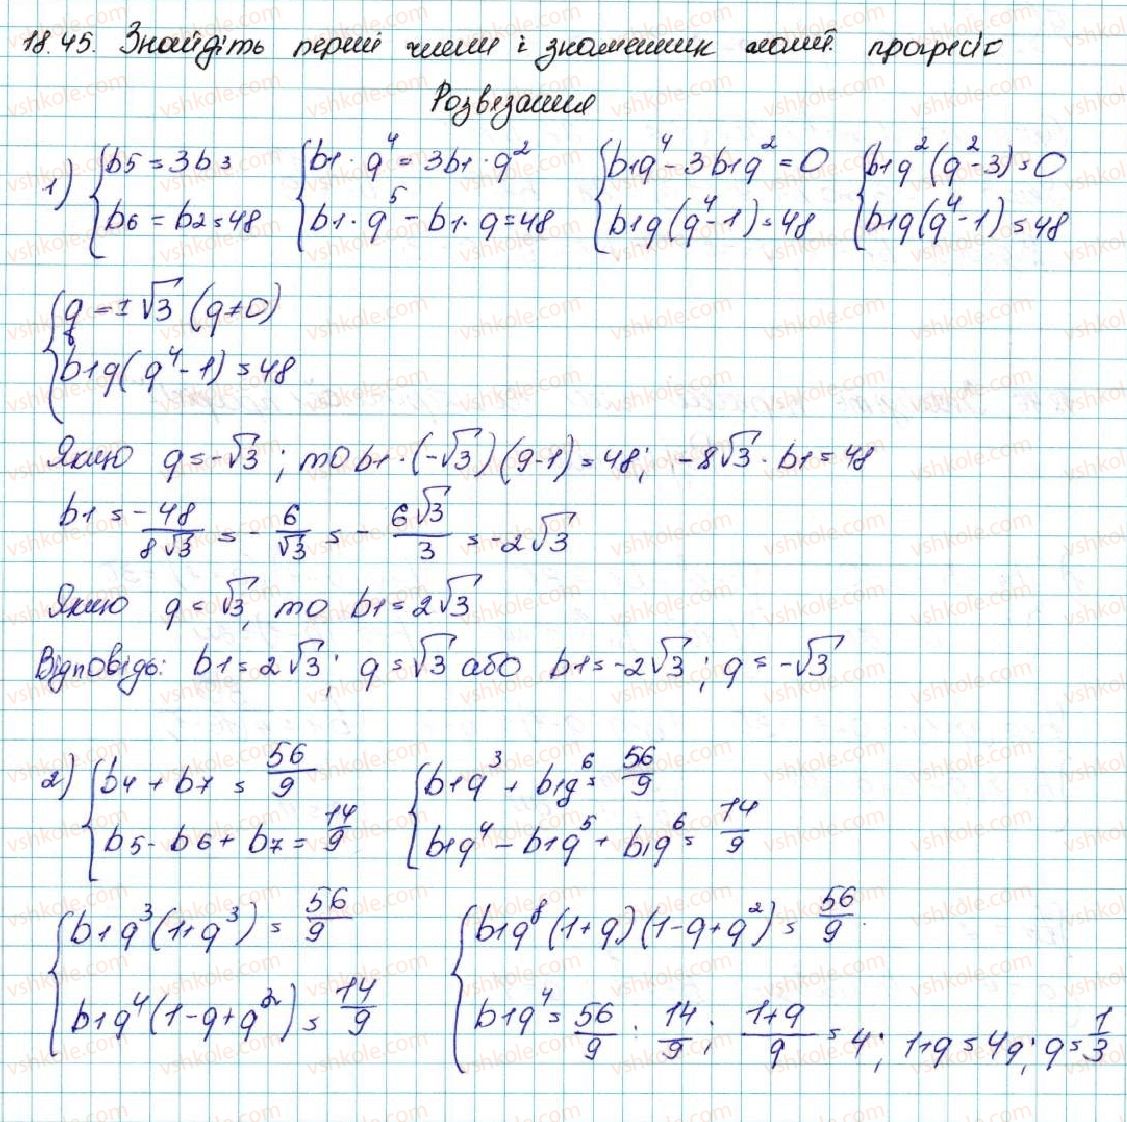 18.45. Знайдіть перші члени і знаменник геом. прогресіє
Розвезання
1) { b5 = 3b3 { b1 · q^4 = 3b1 · q^2 { b1q^4 - 3b1q^2 = 0 { b1q^2 (q^2 - 3) = 0
b6 = b2 = 48 b1 · q^5 - b1 · q = 48 b1q (q^4 - 1) = 48 b1q (q^4 - 1) = 48
{ q = ±√3 (q≠0)
b1q (q^4 - 1) = 48
Якщо q = -√3 ; то b1 · (-√3) (9-1) = 48; -8√3 · b1 = 48
b1 = -48/8√3 = -6/√3 = -6√3/3 = -2√3
Якщо q = √3, то b1 = 2√3
Відповідь: b1 = 2√3; q = √3 або b1 = -2√3; q = -√3
2) { b4 + b7 = 56/9 { b1q^3 + b1q^6 = 56/9
b5 - b6 + b7 = 14/9 b1q^4 - b1q^5 + b1q^6 = 14/9
{ b1q^3 (1+q^3) = 56/9 { b1q^8 (1+q) (1-q+q^2) = 56/9
b1q^4 (1-q+q^2) = 14/9 b1q^4 = 56/9 : 14/9; 1+q/q = 4; 1+q = 4q; q = 1/3